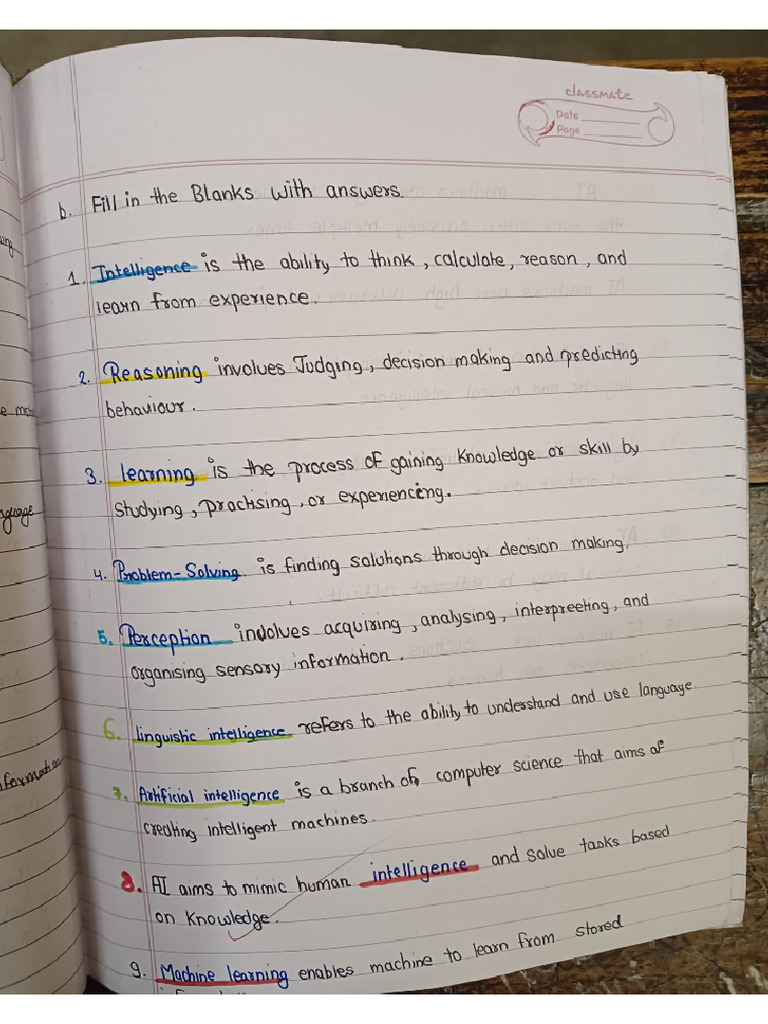 classmate
Date
Page
b. Fill in the Blanks with answers.
1. Intelligence is the ability to think, calculate, reason, and
learn from experience.
2. Reasoning involves Judging, decision making and predicting
behaviour.
3. learning is the process of gaining knowledge or skill by
studying, practising, or experiencing.
4. Problem-Solving is finding solutions through decision making.
5. Perception involves acquiring, analysing, interpreeting, and
organising sensory information.
6. linguistic intelligence refers to the ability to understand and use language.
7. Artificial intelligence is a branch of computer science that aims of
creating intelligent machines.
8. AI aims to mimic human intelligence and solve tasks based
on knowledge.
9. Machine learning enables machine to learn from stored